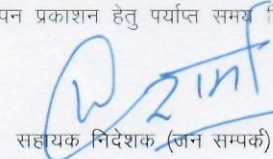 पन प्रकाशन हेतु पर्याप्त समय
शर्मा
सहायक निदेशक (जन सम्पर्क)